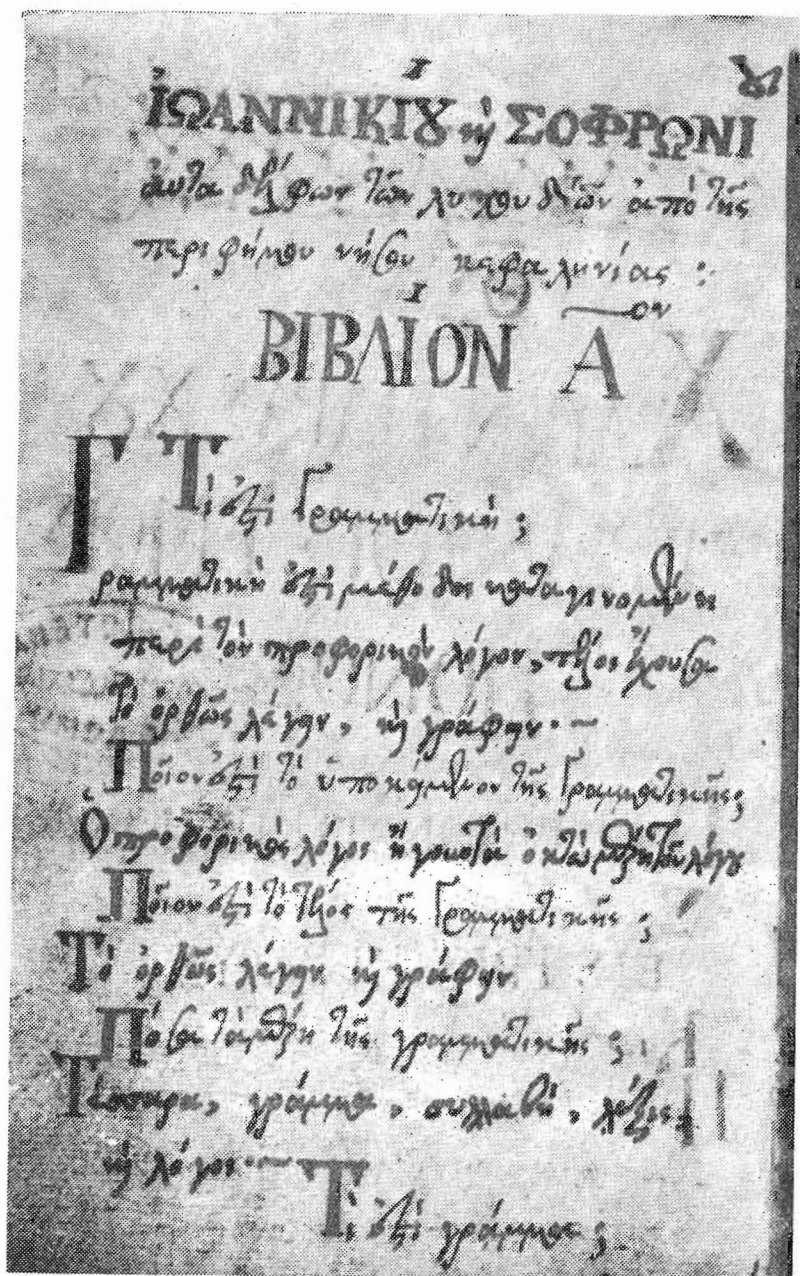 ἸΩΑΝΝΙΚΊΟΥ κὴ ΣΟΦΡΩΝΙΟΥ
ἀυταδέλφων τῶν λυχουδιῶν ἀπὸ τῆς
περιφήμου νήσου κεφαληνίας :
ΒΙΒΛΊΟΝ Α ον
Τί ἐστὶ Γραμματική ;
Γραμματική ἐστὶ μέθοδος καταγινομένη
περὶ τὸν προφορικὸν λόγον, τέλος ἔχουσα
τὸ ὀρθῶς λέγειν, καὶ γράφειν. –
Ποῖον ἐστὶ τὸ ὑποκείμενον τῆς Γραμματικῆς ;
Ὁ προφορικὸς λόγος ἤγουν τὰ ὀκτὼ μέρη τοῦ λόγου
Ποῖον ἐστὶ τὸ τέλος τῆς Γραμματικῆς ;
Τὸ ὀρθῶς λέγειν καὶ γράφειν
Πόσα τὰ μέρη τῆς γραμματικῆς ;
Τέσσαρα, γράμμα, συλλαβή, λέξις,
καὶ λόγος. –
Τί ἐστὶ γράμμα ;